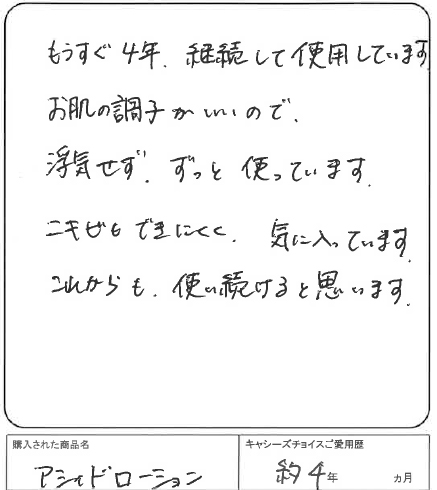 もうすぐ4年、継続して使用しています。
お肌の調子がいいので、
浮気せず、ずっと使っています。
ニキビもできにくく、気に入っています。
これからも、使い続けると思います。
購入された商品名
キャシーズチョイスご愛用歴
アシィドローション
約4年 ヵ月